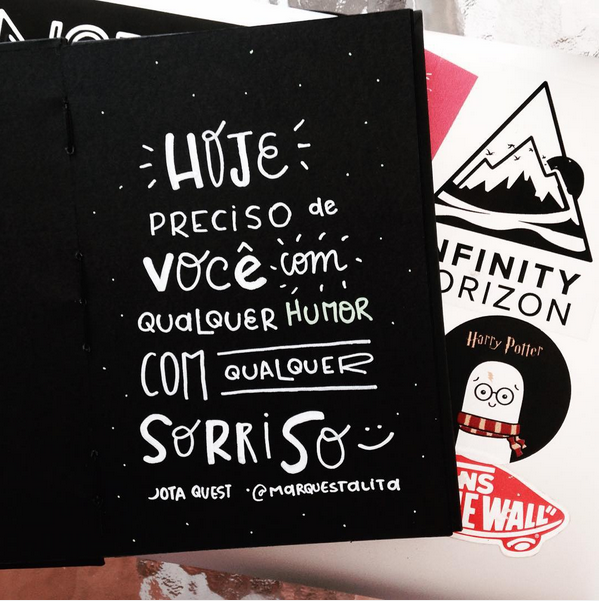 HOJE
PRECISO de
VOCÊ com
QUALQUER HUMOR
COM QUALQUER
SORRISO
JOTA QUEST · @MARQUESTALITA
INFINITY
HORIZON
Harry Potter
VANS
THE WALL"